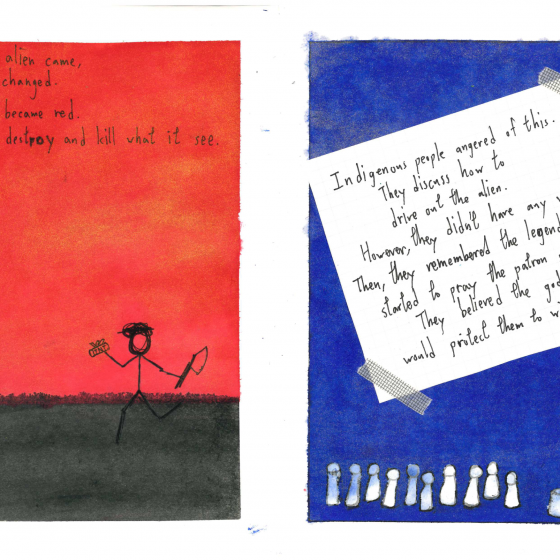 alien came,
changed.
became red.
destroy and kill what it see.
Indigenous people angered of this.
They discuss how to
drive out the alien.
However, they didn't have any
Then, they remembered the legend
started to pray the patron
They believed the god
would protect them to